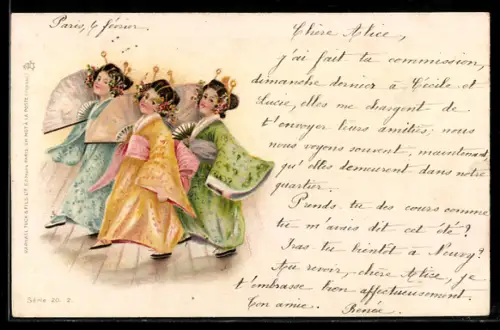 Paris, 6 février.
Chère Alice,
j'ai fait ta commission,
dimanche dernier à Cécile et
Lucie, elles me chargent de
t'envoyer leurs amitiés; nous
nous voyons souvent, maintenant
qu'elles demeurent dans notre
quartier.
Prends tu des cours comme
tu m'avais dit cet été?
Iras tu bientôt à
Au revoir, chère Alice, je
t'embrasse bien affectueusement.
Ton amie. Renée.
RAPHAEL TUCK & FILS
Série 20. 2.